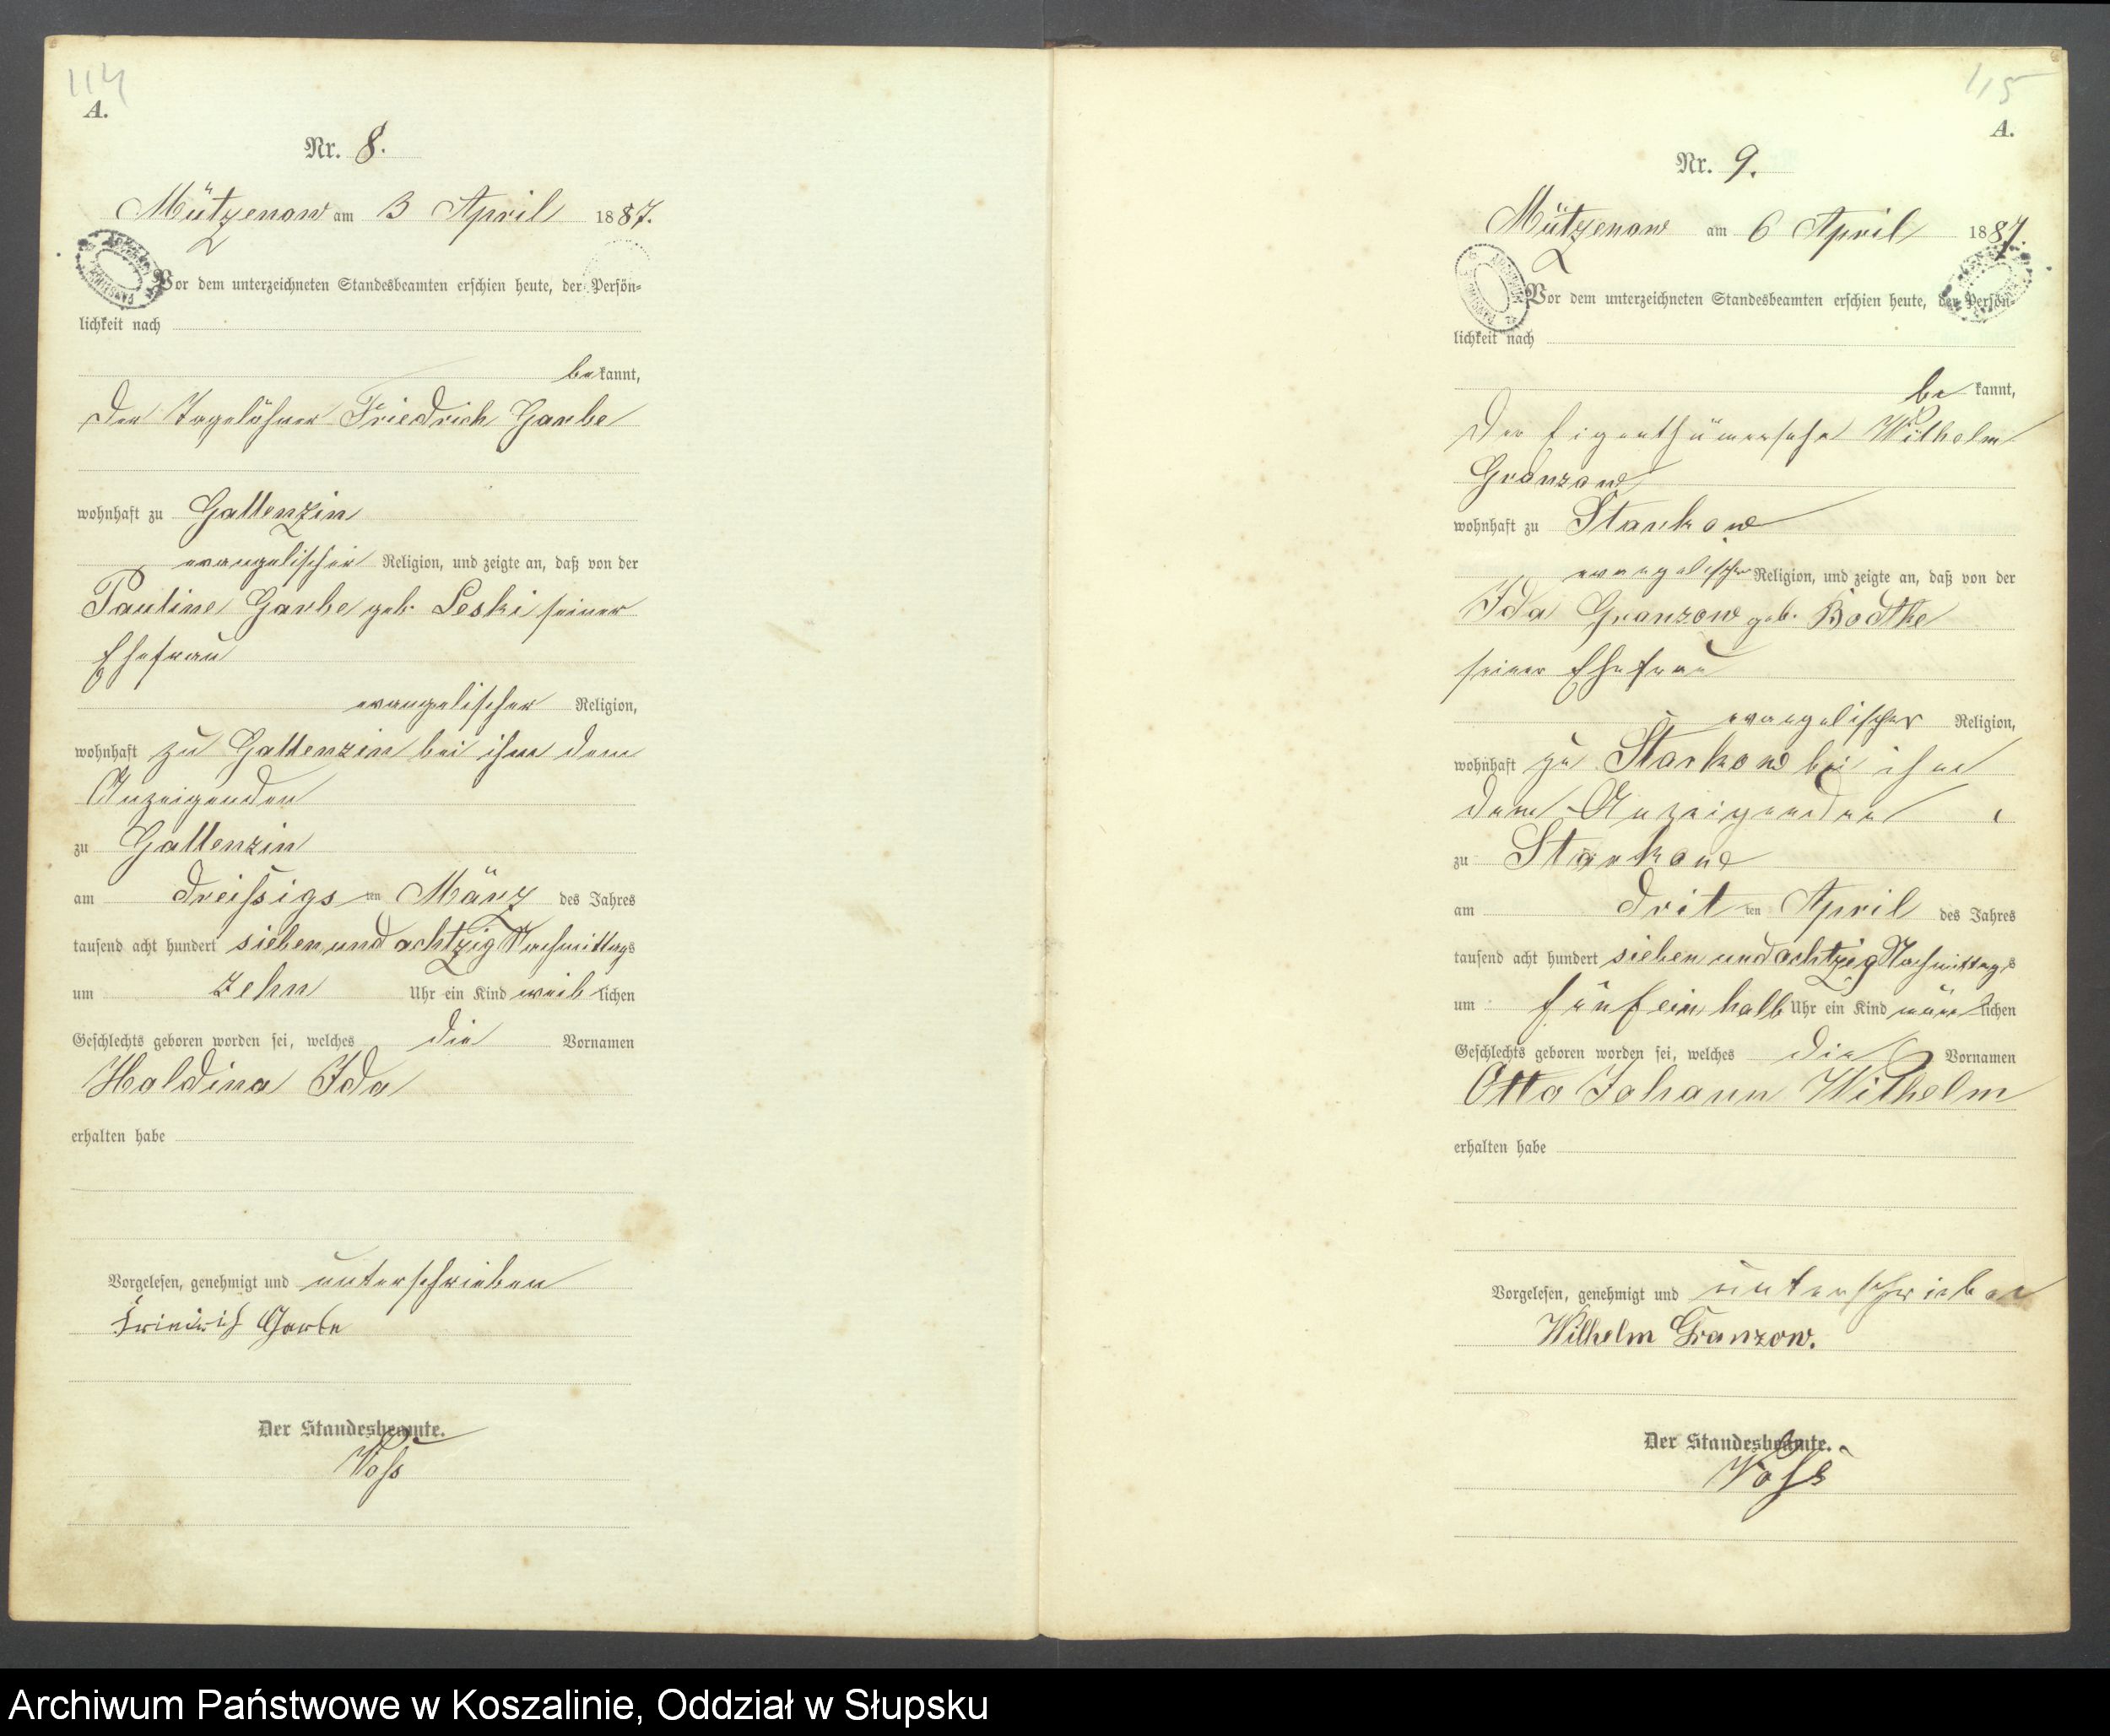 114
A.
Nr. 8.
Mützenow am 3 April 1887.
Vor dem unterzeichneten Standesbeamten erschien heute, der Persön-
lichkeit nach
bekannt,
der Tagelöhner Friedrich Garbe
wohnhaft zu Gallenzin
evangelischer Religion, und zeigte an, daß von der
Pauline Garbe geb. Leski seiner
Ehefrau
evangelischer Religion,
wohnhaft zu Gallenzin bei ihm dem
Anzeigenden
zu Gallenzin
am dreißigsten März des Jahres
tausend acht hundert siebenundachtzig Nachmittags
um zehn Uhr ein Kind weiblichen
Geschlechts geboren worden sei, welches die Vornamen
Haldina Ida
erhalten habe
Vorgelesen, genehmigt und unterschrieben
Friedrich Garbe
Der Standesbeamte.
Voss
115
A.
Nr. 9.
Mützenow am 6 April 1887.
Vor dem unterzeichneten Standesbeamten erschien heute, der Persön-
lichkeit nach
bekannt,
der Eigenthümersohn Wilhelm
Granzow
wohnhaft zu Starkow
evangelischer Religion, und zeigte an, daß von der
Ida Granzow geb. Bodtke
seiner Ehefrau
evangelischer Religion,
wohnhaft zu Starkow bei ihm
dem Anzeigenden
zu Starkow
am dritten April des Jahres
tausend acht hundert siebenundachtzig Nachmittags
um fünfeinhalb Uhr ein Kind männlichen
Geschlechts geboren worden sei, welches die Vornamen
Otto Johann Wilhelm
erhalten habe
Vorgelesen, genehmigt und unterschrieben
Wilhelm Granzow.
Der Standesbeamte.
Voss
Archiwum Państwowe w Koszalinie, Oddział w Słupsku